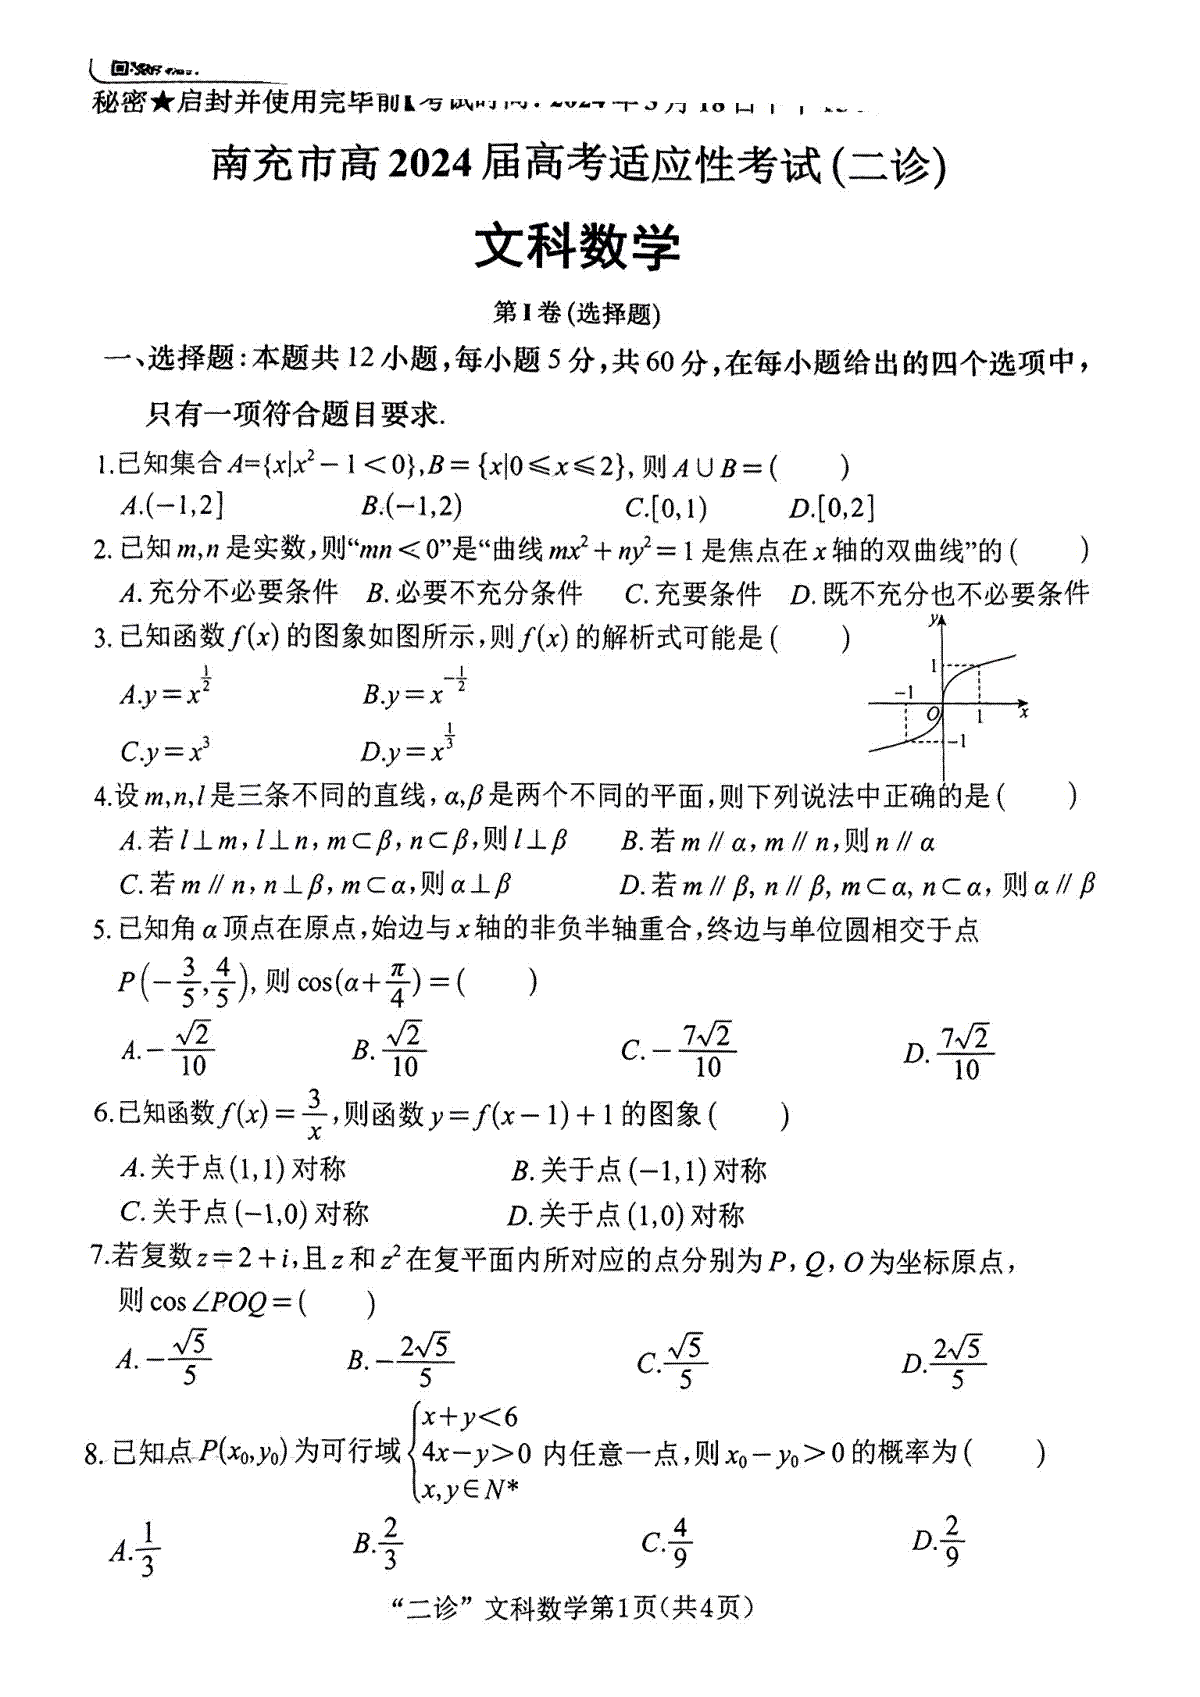 秘密★启封并使用完毕前【考试时间：2024年3月18日下午
南充市高2024届高考适应性考试(二诊)
文科数学
第I卷(选择题)
一、选择题：本题共12小题,每小题5分,共60分,在每小题给出的四个选项中,
只有一项符合题目要求.
1.已知集合A={x|x²-1<0},B={x|0≤x≤2},则A∪B=( )
A.(-1,2] B.(-1,2) C.[0,1) D.[0,2]
2.已知m,n是实数,则“mn<0”是“曲线mx²+ny²=1是焦点在x轴的双曲线”的( )
A.充分不必要条件 B.必要不充分条件 C.充要条件 D.既不充分也不必要条件
3.已知函数f(x)的图象如图所示,则f(x)的解析式可能是( )
A.y=x^{1/2} B.y=x^{-1/2}
C.y=x³ D.y=x^{1/3}
y
1
-1
O
1
x
-1
4.设m,n,l是三条不同的直线,α,β是两个不同的平面,则下列说法中正确的是( )
A.若l⊥m,l⊥n,m⊂β,n⊂β,则l⊥β B.若m∥α,m∥n,则n∥α
C.若m∥n,n⊥β,m⊂α,则α⊥β D.若m∥β,n∥β,m⊂α,n⊂α,则α∥β
5.已知角α顶点在原点,始边与x轴的非负半轴重合,终边与单位圆相交于点
P(-3/5,4/5),则cos(α+π/4)=( )
A.-√2/10 B.√2/10 C.-7√2/10 D.7√2/10
6.已知函数f(x)=3/x,则函数y=f(x-1)+1的图象( )
A.关于点(1,1)对称 B.关于点(-1,1)对称
C.关于点(-1,0)对称 D.关于点(1,0)对称
7.若复数z=2+i,且z和z²在复平面内所对应的点分别为P,Q,O为坐标原点,
则cos∠POQ=( )
A.-√5/5 B.-2√5/5 C.√5/5 D.2√5/5
8.已知点P(x₀,y₀)为可行域{x+y<6 4x-y>0 x,y∈N*内任意一点,则x₀-y₀>0的概率为( )
A.1/3 B.2/3 C.4/9 D.2/9
“二诊”文科数学第1页(共4页)